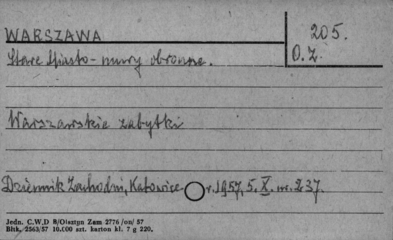 WARSZAWA
205.
Stare Miasto - mury obronne.
O.Z.
Warszawskie zabytki
Dziennik Zachodni, Katowice r. 1957, 5. X. nr. 237.
Jedn. C.W.D 8/Olsztyn Zam 2776 /on/ 57
Błtk. 2563/57 10.000 szt. karton kl. 7 g 220,